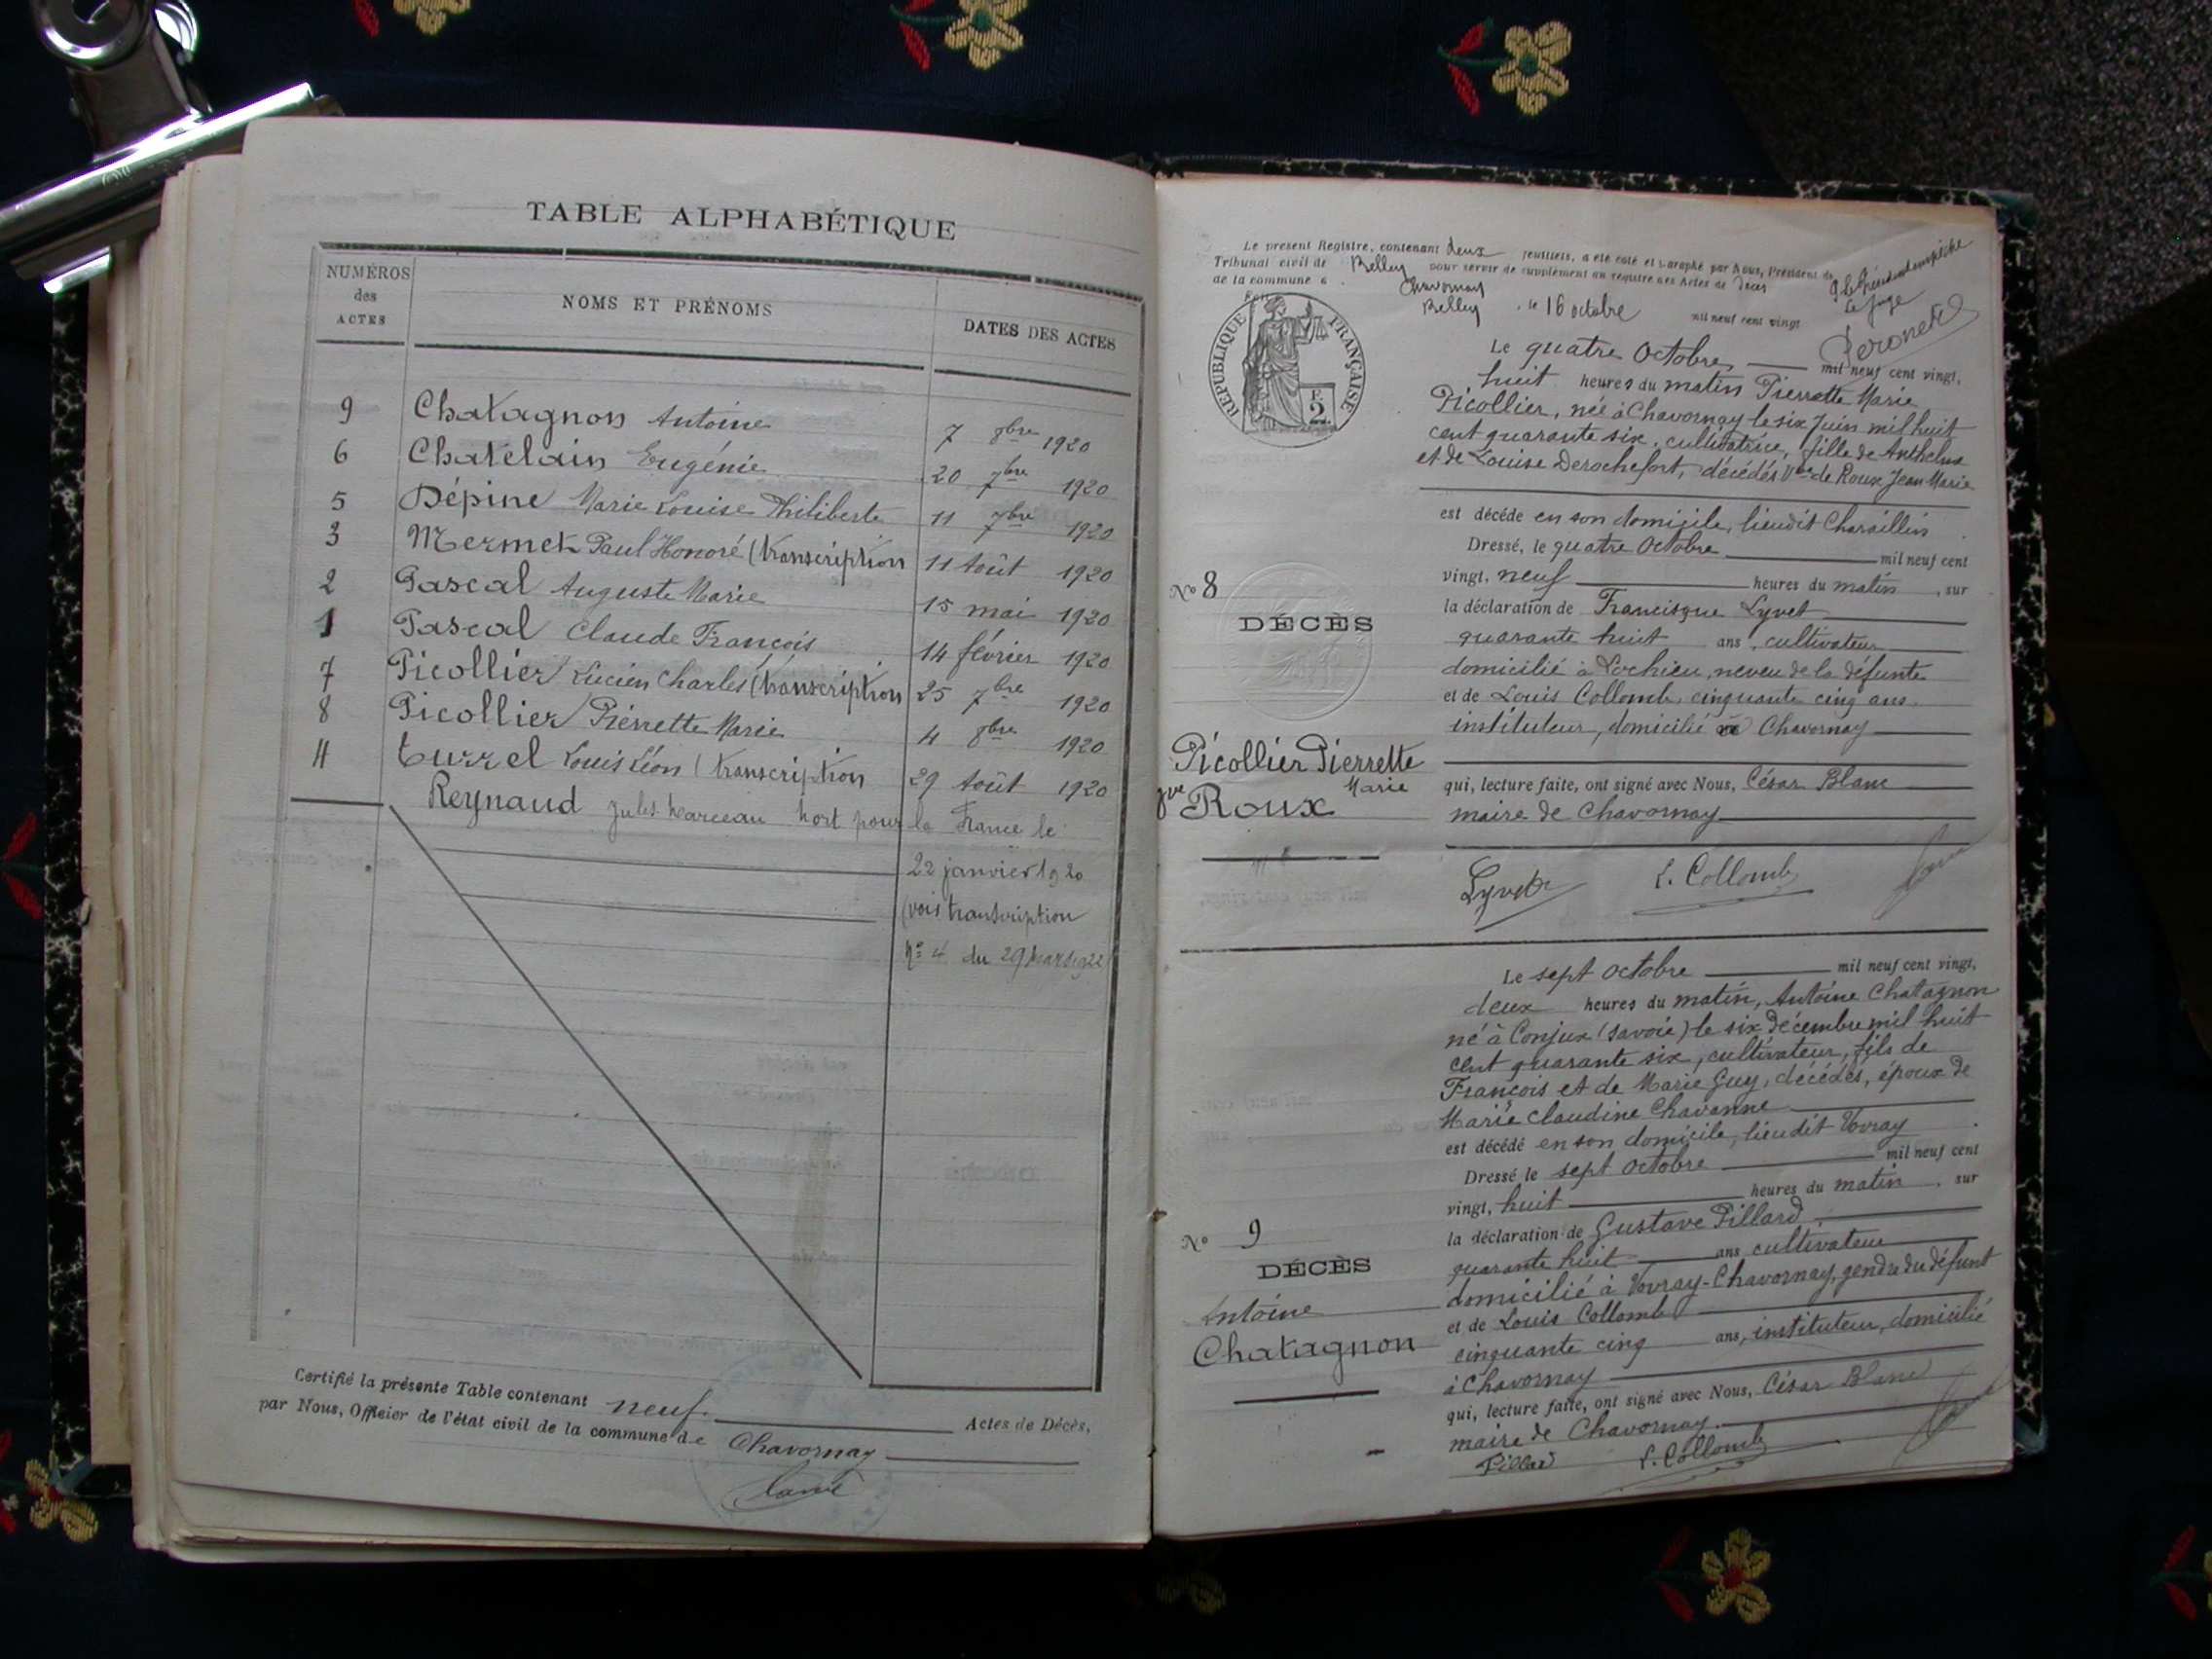 TABLE ALPHABÉTIQUE
NUMÉROS des ACTES
NOMS ET PRÉNOMS
DATES DES ACTES
9 Chatagnon Antoine 7 8bre 1920
6 Chatelain Eugénie 20 7bre 1920
5 Dépine Marie Louise Philiberte 11 7bre 1920
3 Mermet Paul Honoré (transcription 11 Août 1920
2 Pascal Auguste Marie 15 mai 1920
1 Pascal Claude François 14 février 1920
7 Picollier Lucien Charles (transcription 25 7bre 1920
8 Picollier Pierrette Marie 4 8bre 1920
4 Turrel Louis Léon (transcription 29 Août 1920
Reynaud Jules Marceau Mort pour la France le
22 janvier 1920
(voir transcription
No 4 du 29 mars 1922
Certifié la présente Table contenant neuf Actes de Décès,
par Nous, Officier de l'état civil de la commune de Chavornay
Le présent Registre, contenant deux feuillets, a été coté et paraphé par Nous, Président du
Tribunal civil de Belley pour servir de supplément au registre des Actes de Décès
de la commune d Chavornay
Belley, le 16 octobre mil neuf cent vingt
Le Juge
RÉPUBLIQUE FRANÇAISE
2
Le quatre Octobre mil neuf cent vingt,
huit heures du matin Pierrette Marie
Picollier, née à Chavornay le six Juin mil huit
cent quarante six, cultivatrice, fille de Anthelme
et de Louise Derochefort, décédés Vve de Roux Jean Marie
est décédé en son domicile, lieudit Charaillin
Dressé, le quatre Octobre mil neuf cent
vingt, neuf heures du matin, sur
la déclaration de Francisque Lyvet
quarante huit ans, cultivateur
domicilié à Lochieu, neveu de la défunte
et de Louis Collomb, cinquante cinq ans
instituteur, domicilié à Chavornay
qui, lecture faite, ont signé avec Nous, César Blanc
maire de Chavornay
No 8
DÉCÈS
Picollier Pierrette
Marie
Vve Roux
Lyvet L. Collomb
Le sept octobre mil neuf cent vingt,
deux heures du matin, Antoine Chatagnon
né à Conjux (Savoie) le six décembre mil huit
cent quarante six, cultivateur, fils de
François et de Marie Guy, décédés, époux de
Marie Claudine Chavanne
est décédé en son domicile, lieudit Vovray
Dressé, le sept octobre mil neuf cent
vingt, huit heures du matin, sur
la déclaration de Gustave Pillard,
quarante huit ans cultivateur
domicilié à Vovray-Chavornay, gendre du défunt
et de Louis Collomb
cinquante cinq ans, instituteur, domicilié
à Chavornay
qui, lecture faite, ont signé avec Nous, César Blanc
maire de Chavornay.
No 9
DÉCÈS
Antoine
Chatagnon
Pillard L. Collomb